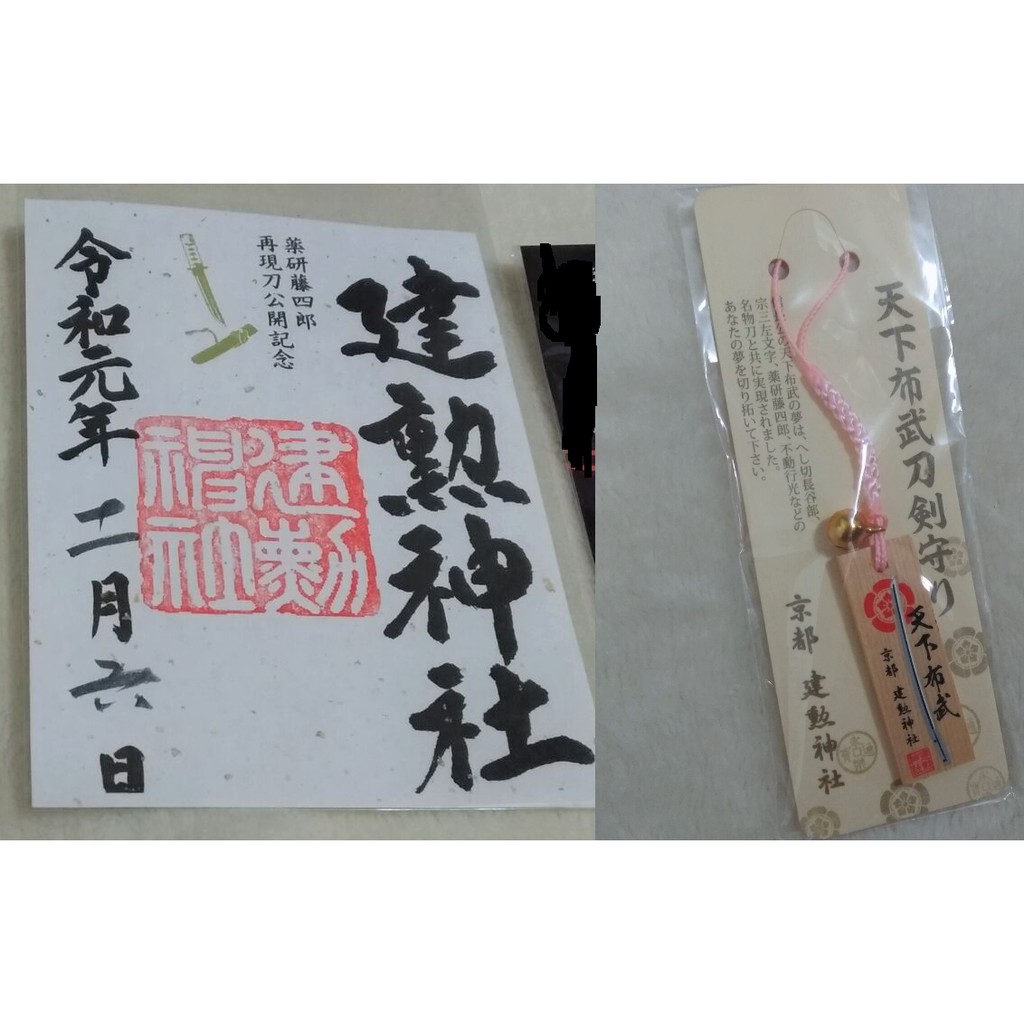 建勲神社
薬研藤四郎
再現刀公開記念
建勲神社
令和元年十一月六日
天下布武刀剣守り
京都 建勲神社
公の天下布武の夢は、へし切長谷部、
宗三左文字、薬研藤四郎、不動行光などの
名物刀と共に実現されました。
あなたの夢を切り拓いて下さい。
天下布武
京都 建勲神社